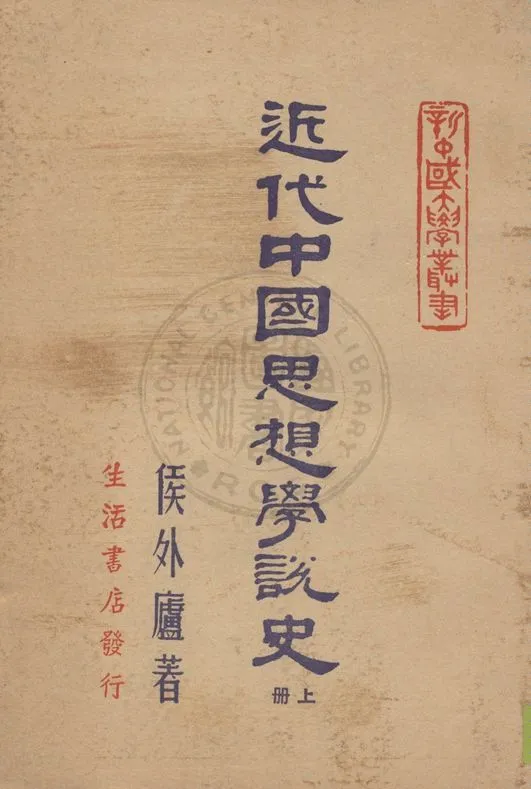 新中國大學叢書
近代中國思想學說史
上册
侯外廬著
生活書店發行
NATIONAL CENTRAL LIBRARY